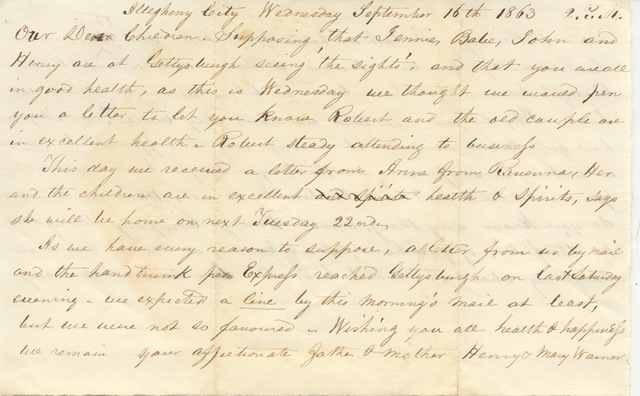 Allegheny City Wednesday September 16th 1863 2. P.M.
Our Dear Children. Supposing that Jennie, Babe, John and
Henry are at Gettysburgh seeing 'the sights', and that you are all
in good health, as this is Wednesday we thought we would pen
you a letter to let you know Robert and the old couple are
in excellent health. Robert steady attending to business
This day we received a letter from Anne from Ravenna, Her
and the children are in excellent and spirits health & spirits, says
she will be home on next Tuesday 22nd.
As we have every reason to suppose, a letter from us by mail
and the hand trunk per Express reached Gettysburgh on last Saturday
evening - we expected a line by this morning's mail at least,
but we were not so favoured. Wishing you all health & happiness
we remain your affectionate father & mother Henry & Mary Warner